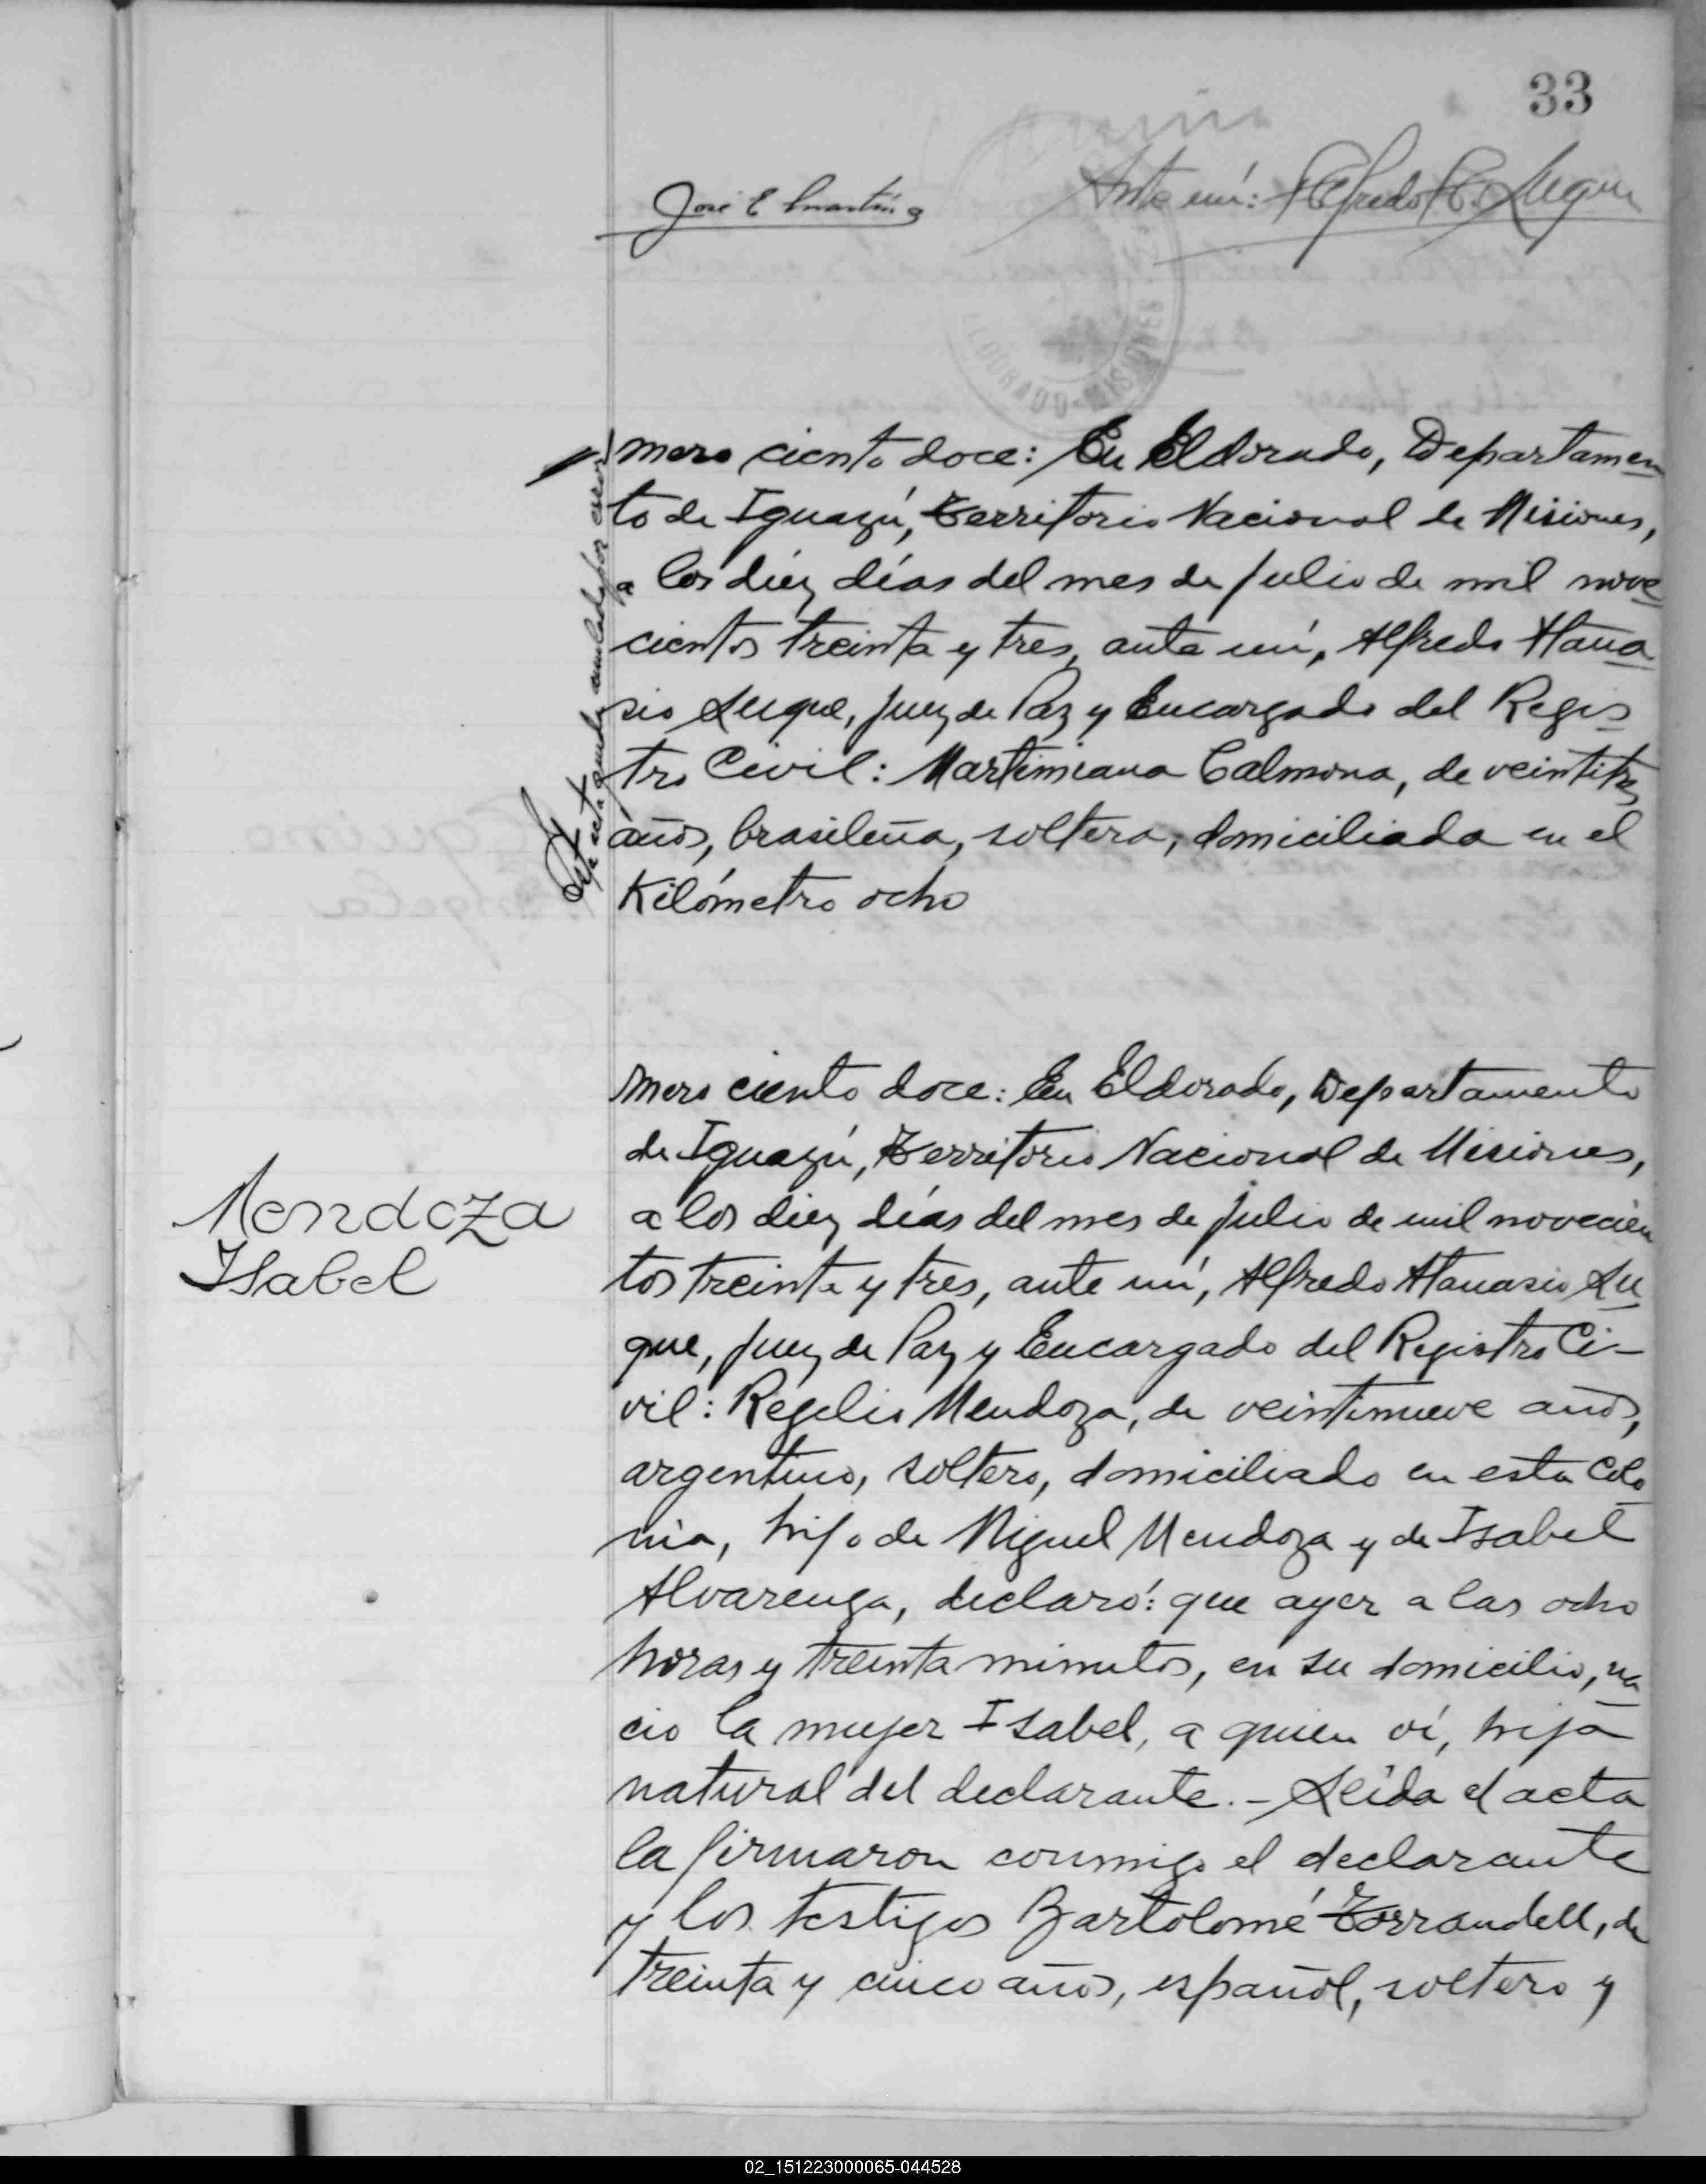 33
José E Martínez
Ante mí: Alfredo A. Luque
ELDORADO - MISIONES
mero ciento doce: En Eldorado, Departamen
to de Iguazú, Territorio Nacional de Misiones,
a los diez días del mes de julio de mil nove
cientos treinta y tres, ante mí, Alfredo Atana
sio Luque, juez de Paz y Encargado del Regis
tro Civil: Martimiana Calmona, de veintitres
años, brasileña, soltera, domiciliada en el
Kilómetro ocho
Esta acta queda anulada por error
Mendoza
Isabel
mero ciento doce: En Eldorado, Departamento
de Iguazú, Territorio Nacional de Misiones,
a los diez días del mes de julio de mil novecien
tos treinta y tres, ante mí, Alfredo Atanasio Lu
que, juez de Paz y Encargado del Registro Ci-
vil: Rogelio Mendoza, de veintinueve años,
argentino, soltero, domiciliado en esta Colo
nia, hijo de Miguel Mendoza y de Isabel
Alvarenga, declaró: que ayer a las ocho
horas y treinta minutos, en su domicilio, na
cio la mujer Isabel, a quien ví, hija
natural del declarante.- Leída el acta
la firmaron conmigo el declarante
y los testigos Bartolomé Torrandell, de
treinta y cinco años, español, soltero y
02_151223000065-044528